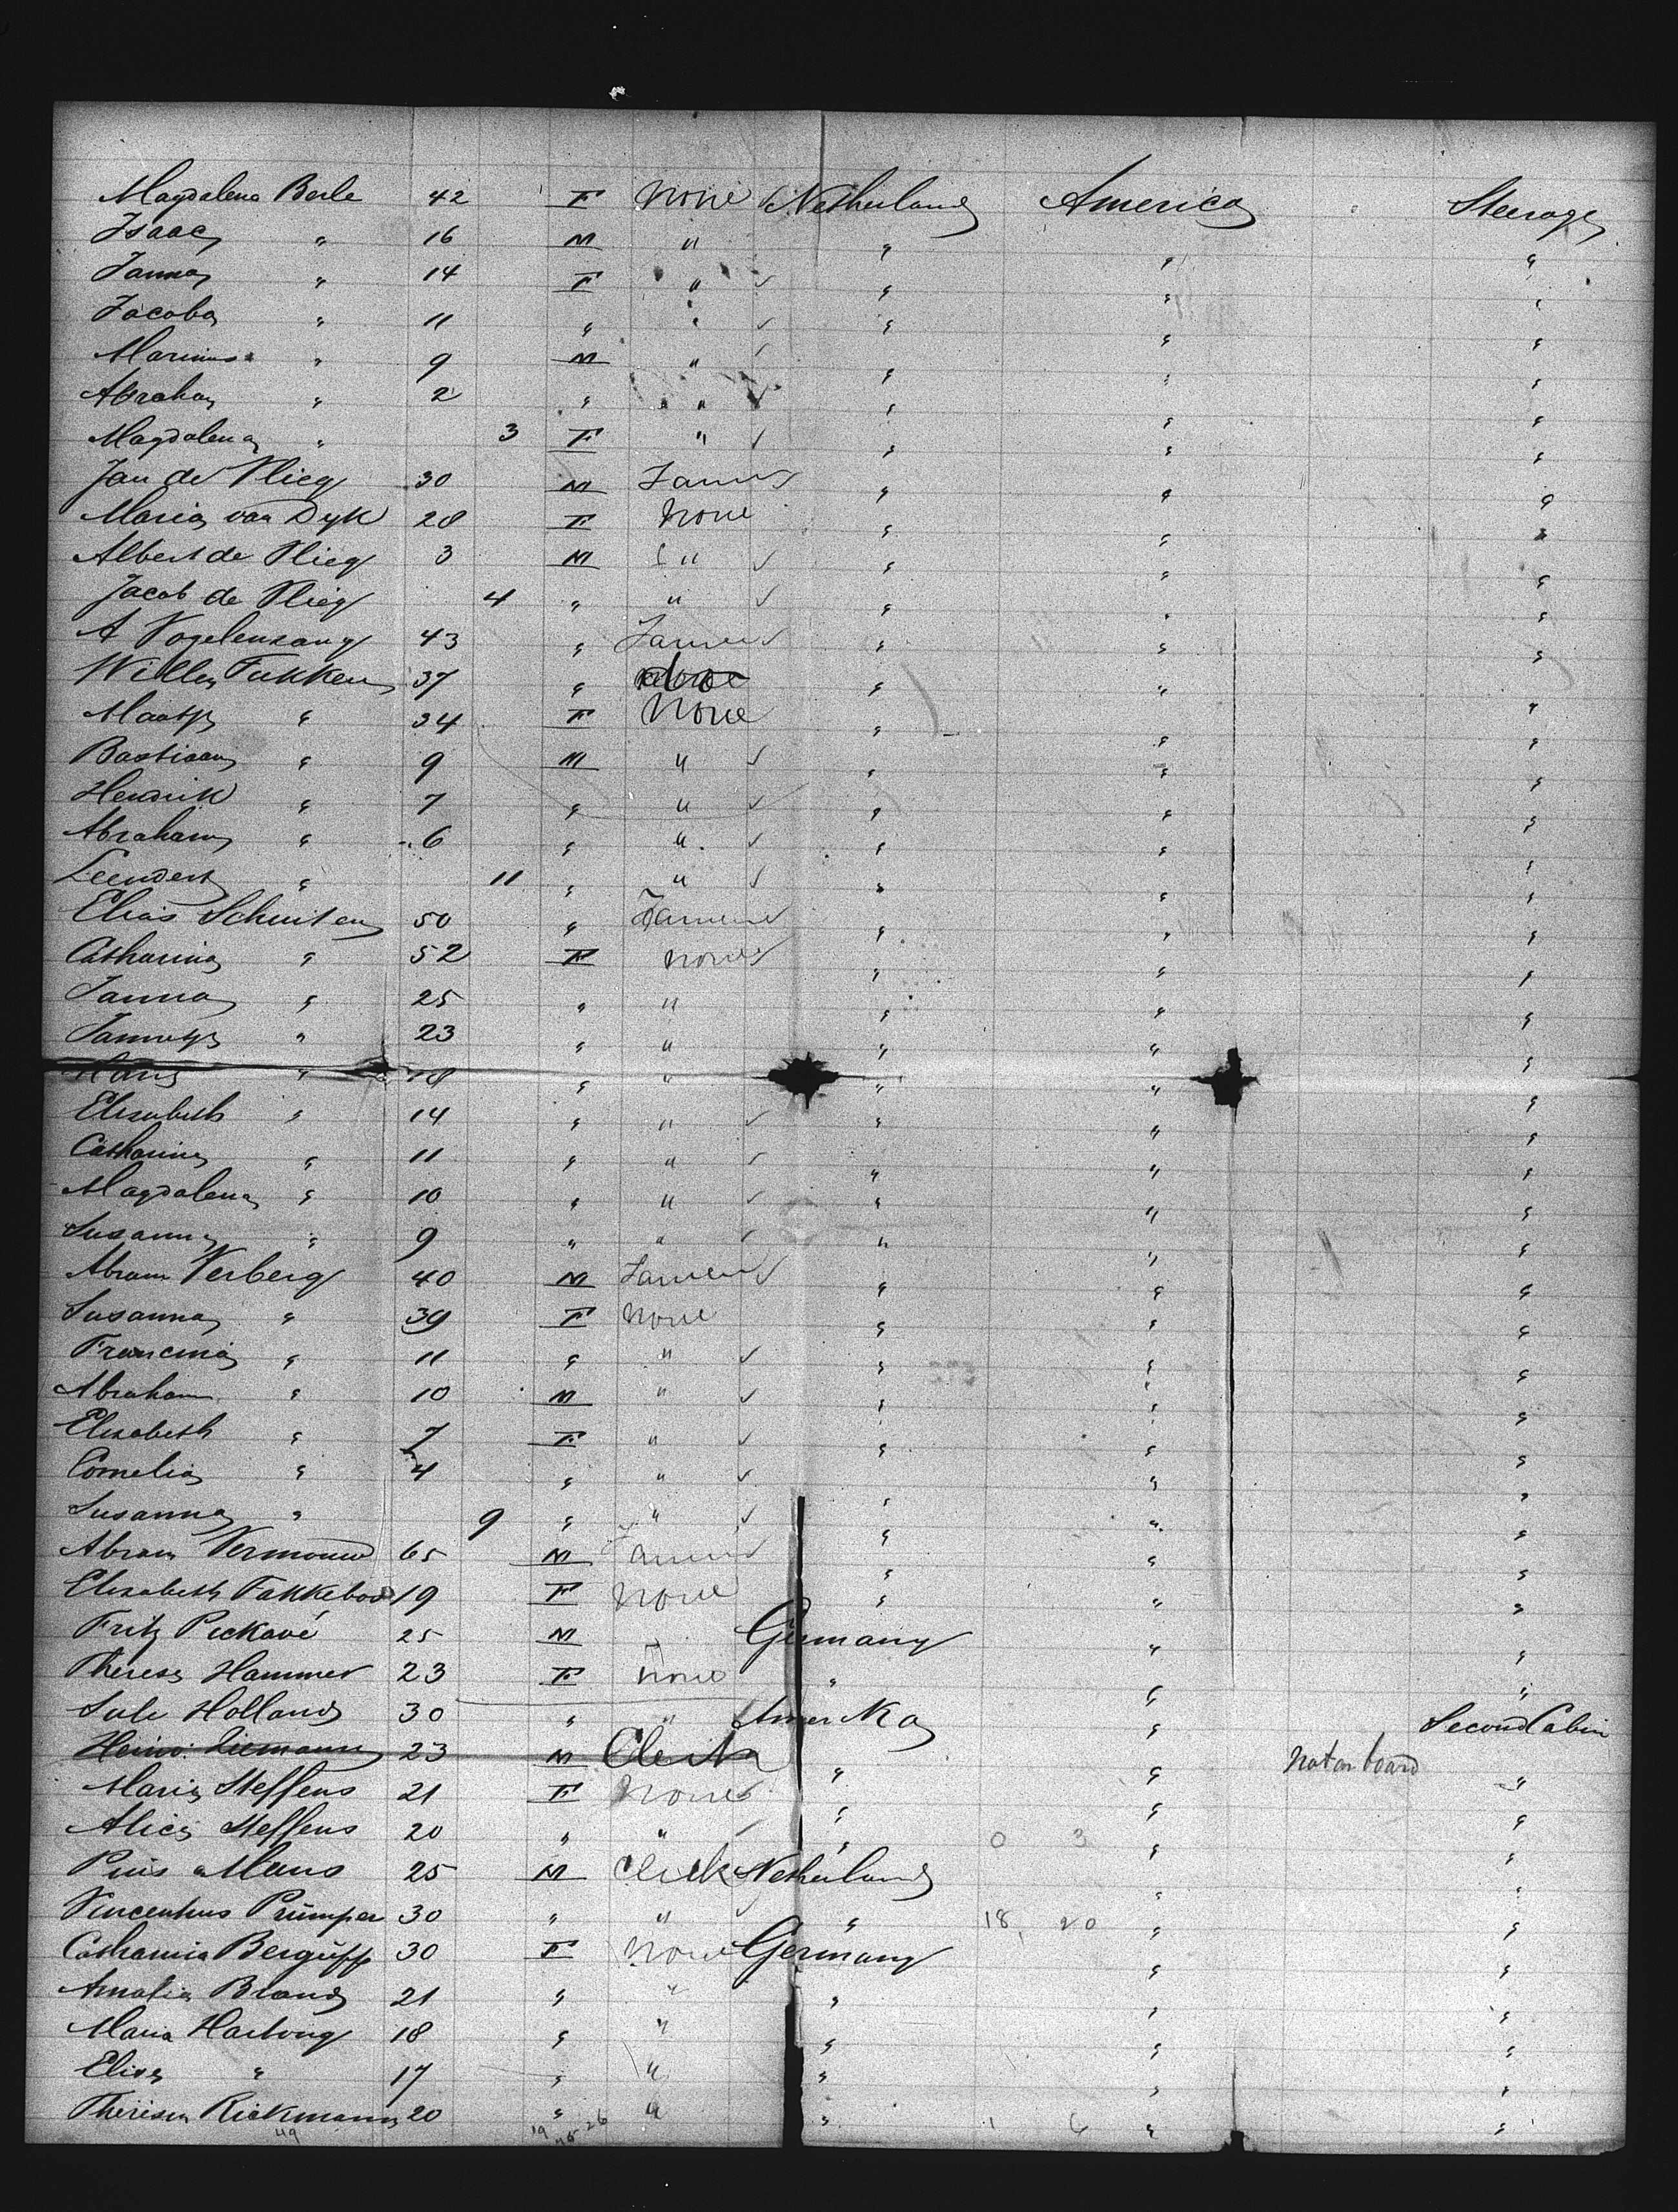 Magdalena Berle 42 F None Netherland America Steerage
Isaac " 16 M " " " "
Janna " 14 F " ✓ " " "
Jacoba " 11 " " ✓ " " "
Marinus " 9 M " ✓ " " "
Abraham " 2 " " ✓ " " "
Magdalena " 3 F " ✓ " " "
Jan de Vlieg 30 M Farmer " " "
Maria van Dyk 28 F None " " "
Albert de Vlieg 3 M " ✓ " " "
Jacob de Vlieg 4 " " ✓ " " "
A Vogelenzang 43 " Farmer " " "
Willem Fukken 37 " do " " "
Maatje " 34 F None " " "
Bastiaan " 9 M " ✓ " " "
Hendrik " 7 " " ✓ " " "
Abraham " 6 " " ✓ " " "
Leendert " 11 " " ✓ " " "
Elias Schuiten 50 " Farmer " " "
Catharina " 52 F None " " "
Janna " 25 " " " " "
Jannetje " 23 " " " " "
" 18 " " " " "
Elisabeth " 14 " " ✓ " " "
Catharina " 11 " " ✓ " " "
Magdalena " 10 " " ✓ " " "
Susanna " 9 " " ✓ " " "
Abram Verberg 40 M Farmer " " "
Susanna " 39 F None " " "
Francina " 11 " " ✓ " " "
Abraham " 10 M " ✓ " " "
Elisabeth " 7 F " ✓ " " "
Cornelia " 4 " " ✓ " " "
Susanna " 9 " " ✓ " " "
Abram Vermouw 65 M Farmer " " "
Elisabeth Fakkebos 19 F None " " "
Fritz Pickavé 25 M Germany " "
Therese Hammer 23 F None " " "
Sule Holland 30 " " Amerika " Second Cabin
Heinr. Liemann 23 M Clerk " " Not on board "
Maria Steffens 21 F None " " "
Alice Steffens 20 " " " 0 3 " "
Pius Maus 25 M Clerk Netherland " "
Vincentius Prümper 30 " " " 18 20 " "
Catharina Bergüff 30 F None Germany " "
Amalia Brand 21 " " " " "
Maria Hartwig 18 " " " " "
Elise " 17 " " " " "
Theresia Rickmann 20 " " " 1 6 " "
49 19 45 26